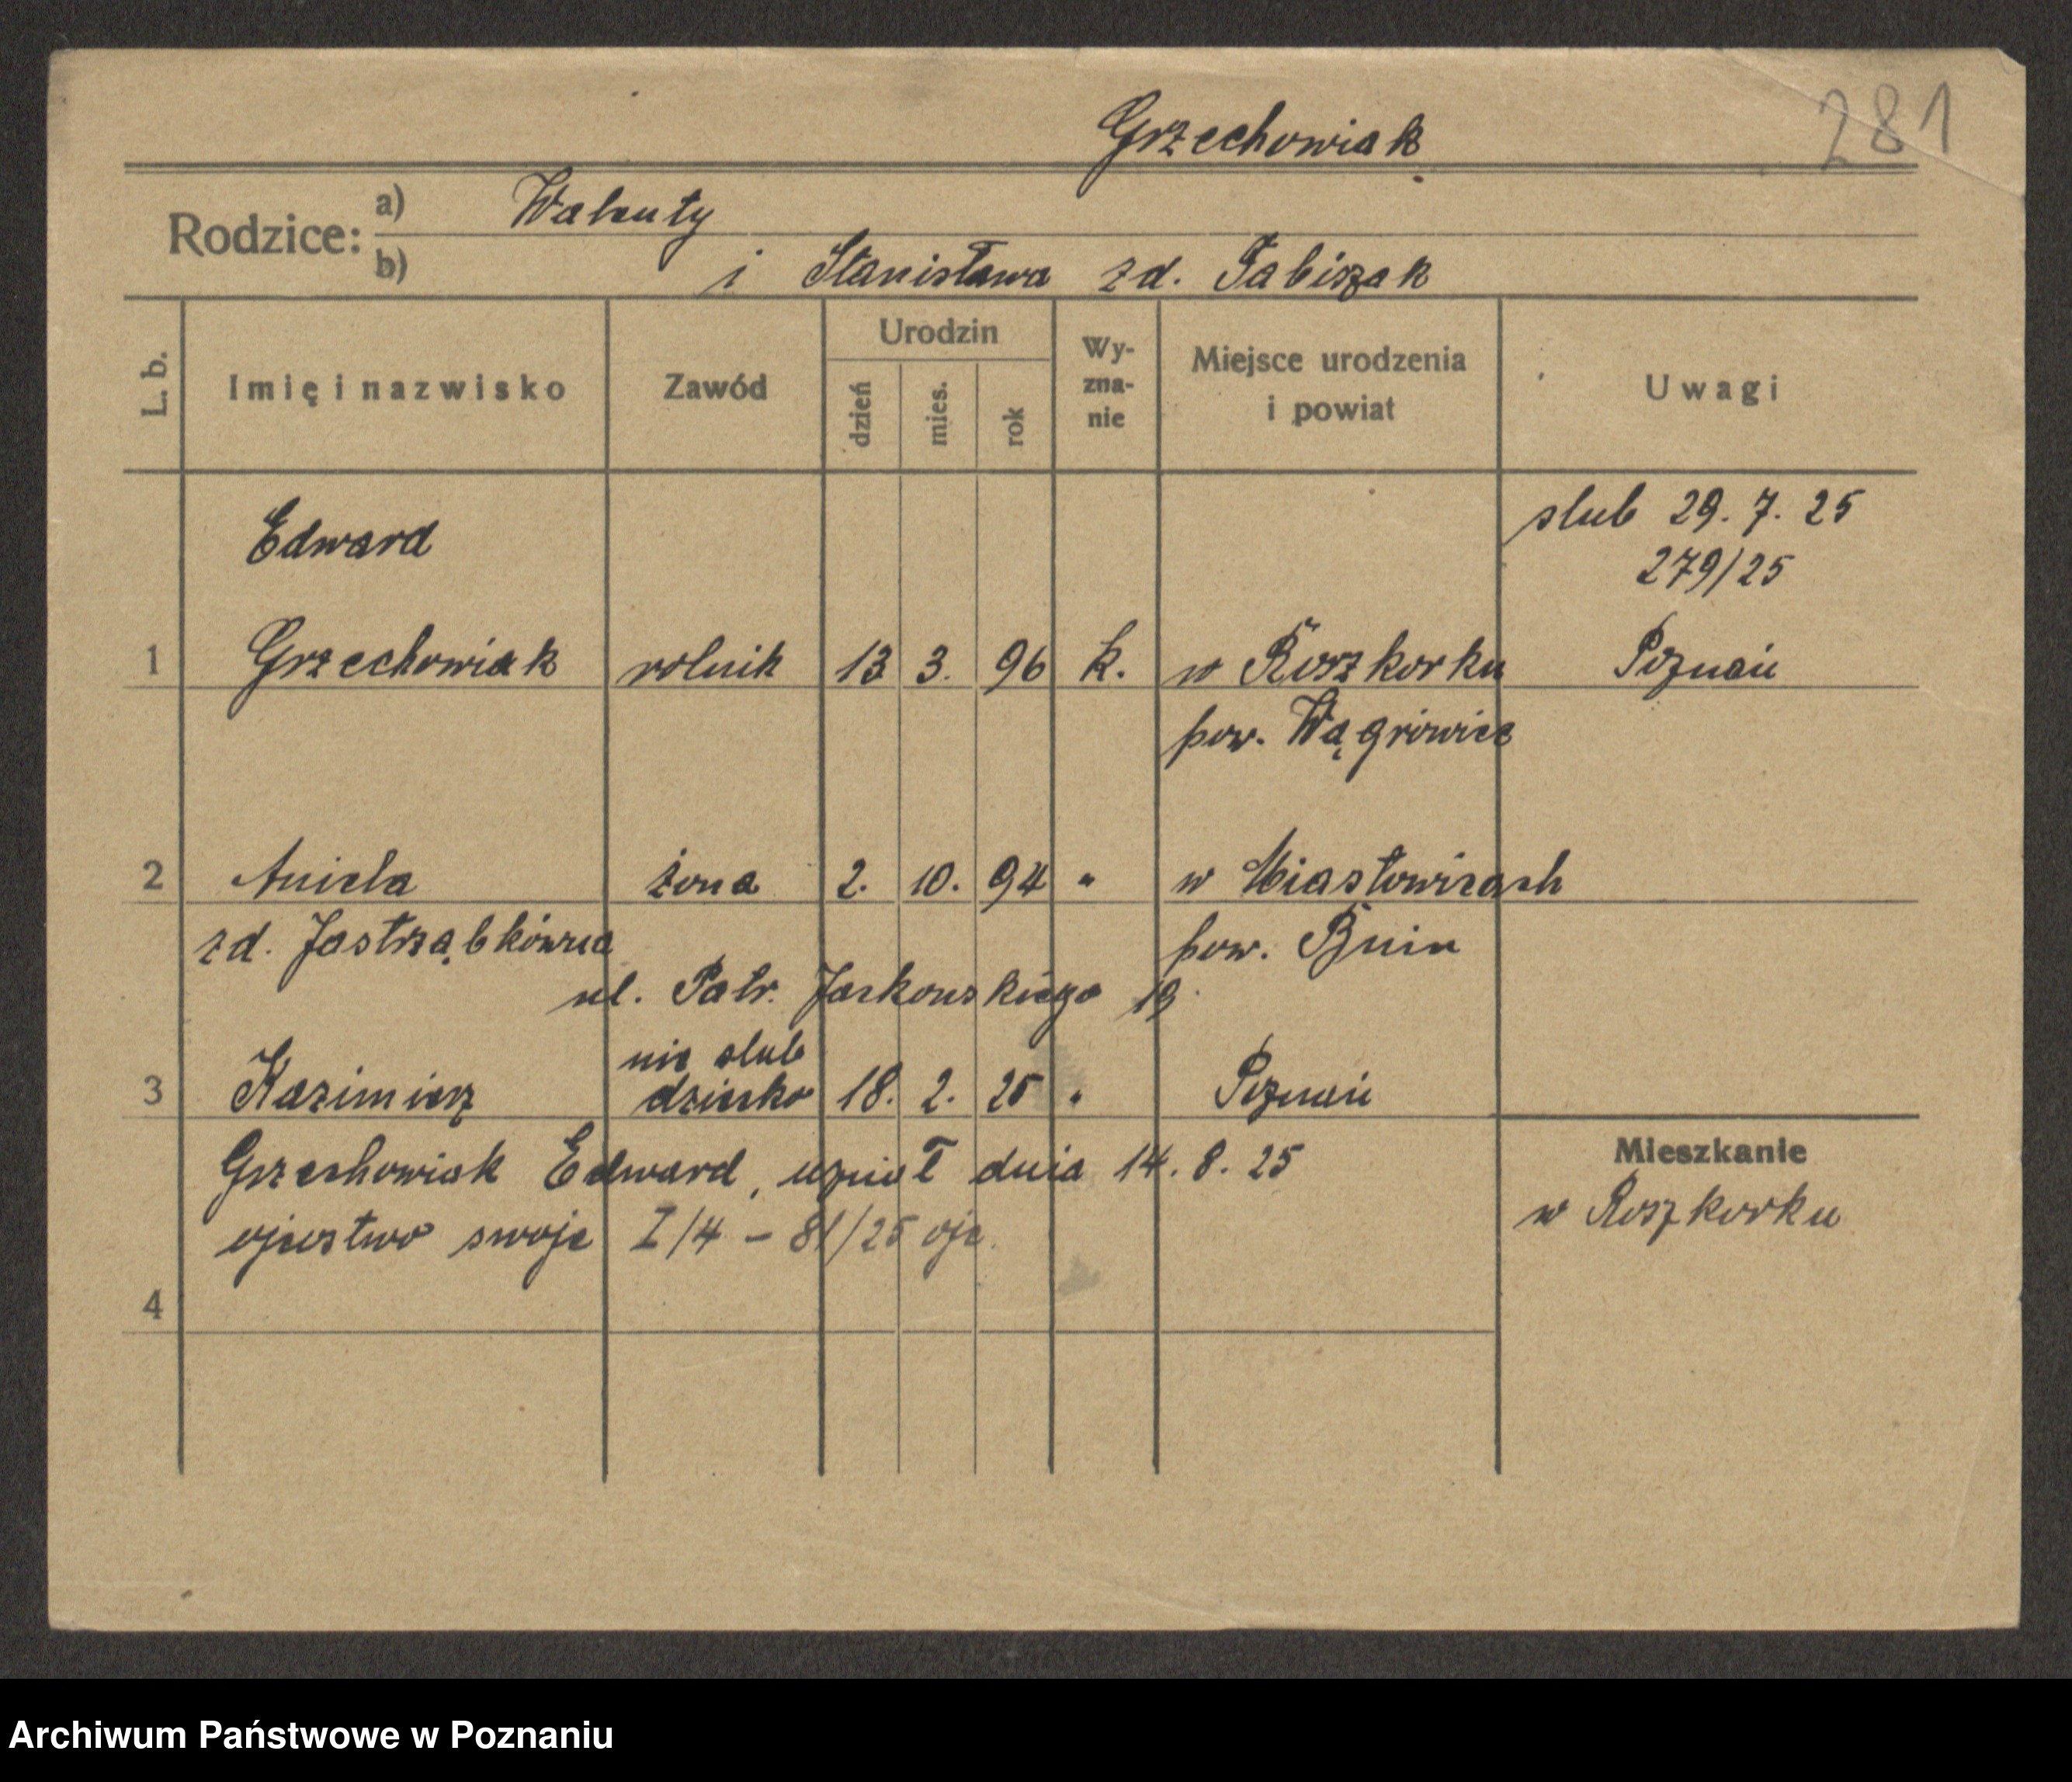 281
Grzechowiak
Rodzice: a) Walenty
b) i Stanisława zd. Fabiszak
L. b. Imię i nazwisko Zawód Urodzin dzień mies. rok Wy-zna-nie Miejsce urodzenia i powiat Uwagi
Edward slub 29. 7. 25
279/25
1 Grzechowiak rolnik 13 3. 96 k. w Roszkorku Poznań
pow. Wągrówiec
2 Aniela żona 2. 10. 94 " w Miastowicach
zd. Jastrząbkówna pow. Bnin
ul. Patr. Jackowskiego 19
nie slub
3 Kazimierz dziecko 18. 2. 25 " Poznań
Grzechowiak Edward, uznał dnia 14. 8. 25
Mieszkanie
ojcostwo swoje I/4 - 81/25 ojc. w Roszkorku
4
Archiwum Państwowe w Poznaniu